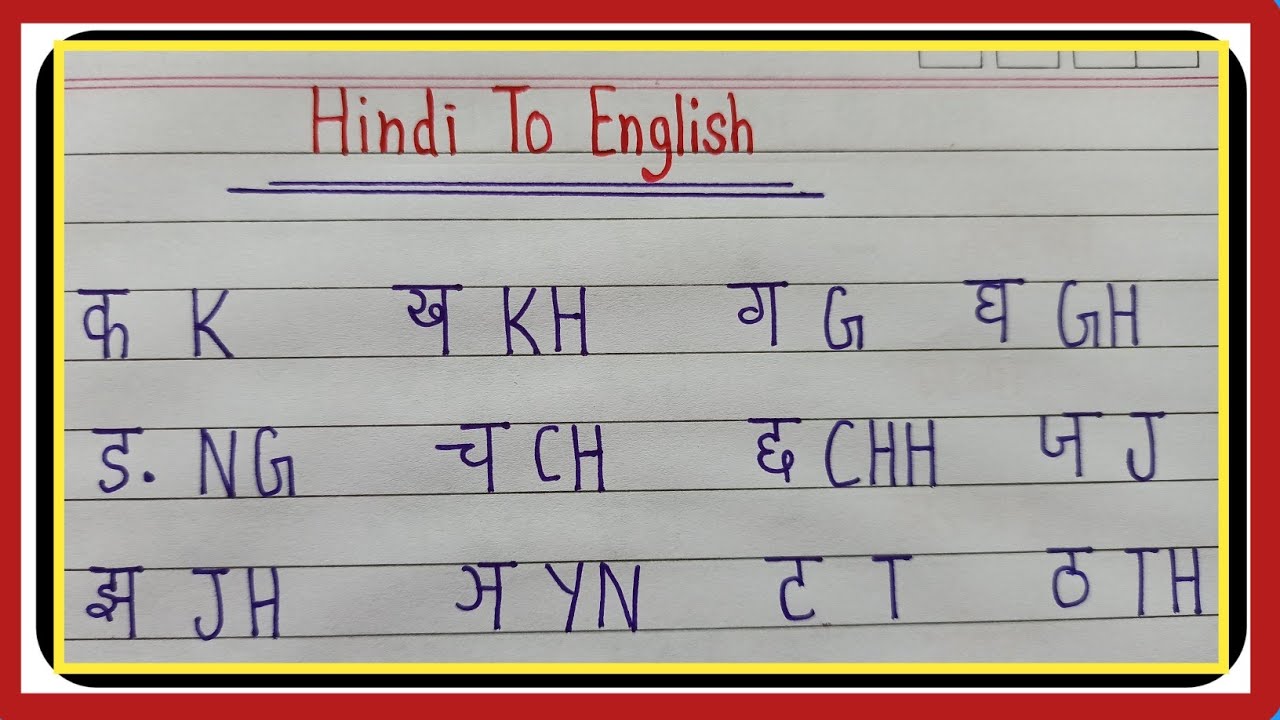 Hindi To English
क K ख KH ग G घ GH
ड. NG च CH छ CHH ज J
झ JH ञ YN ट T ठ TH